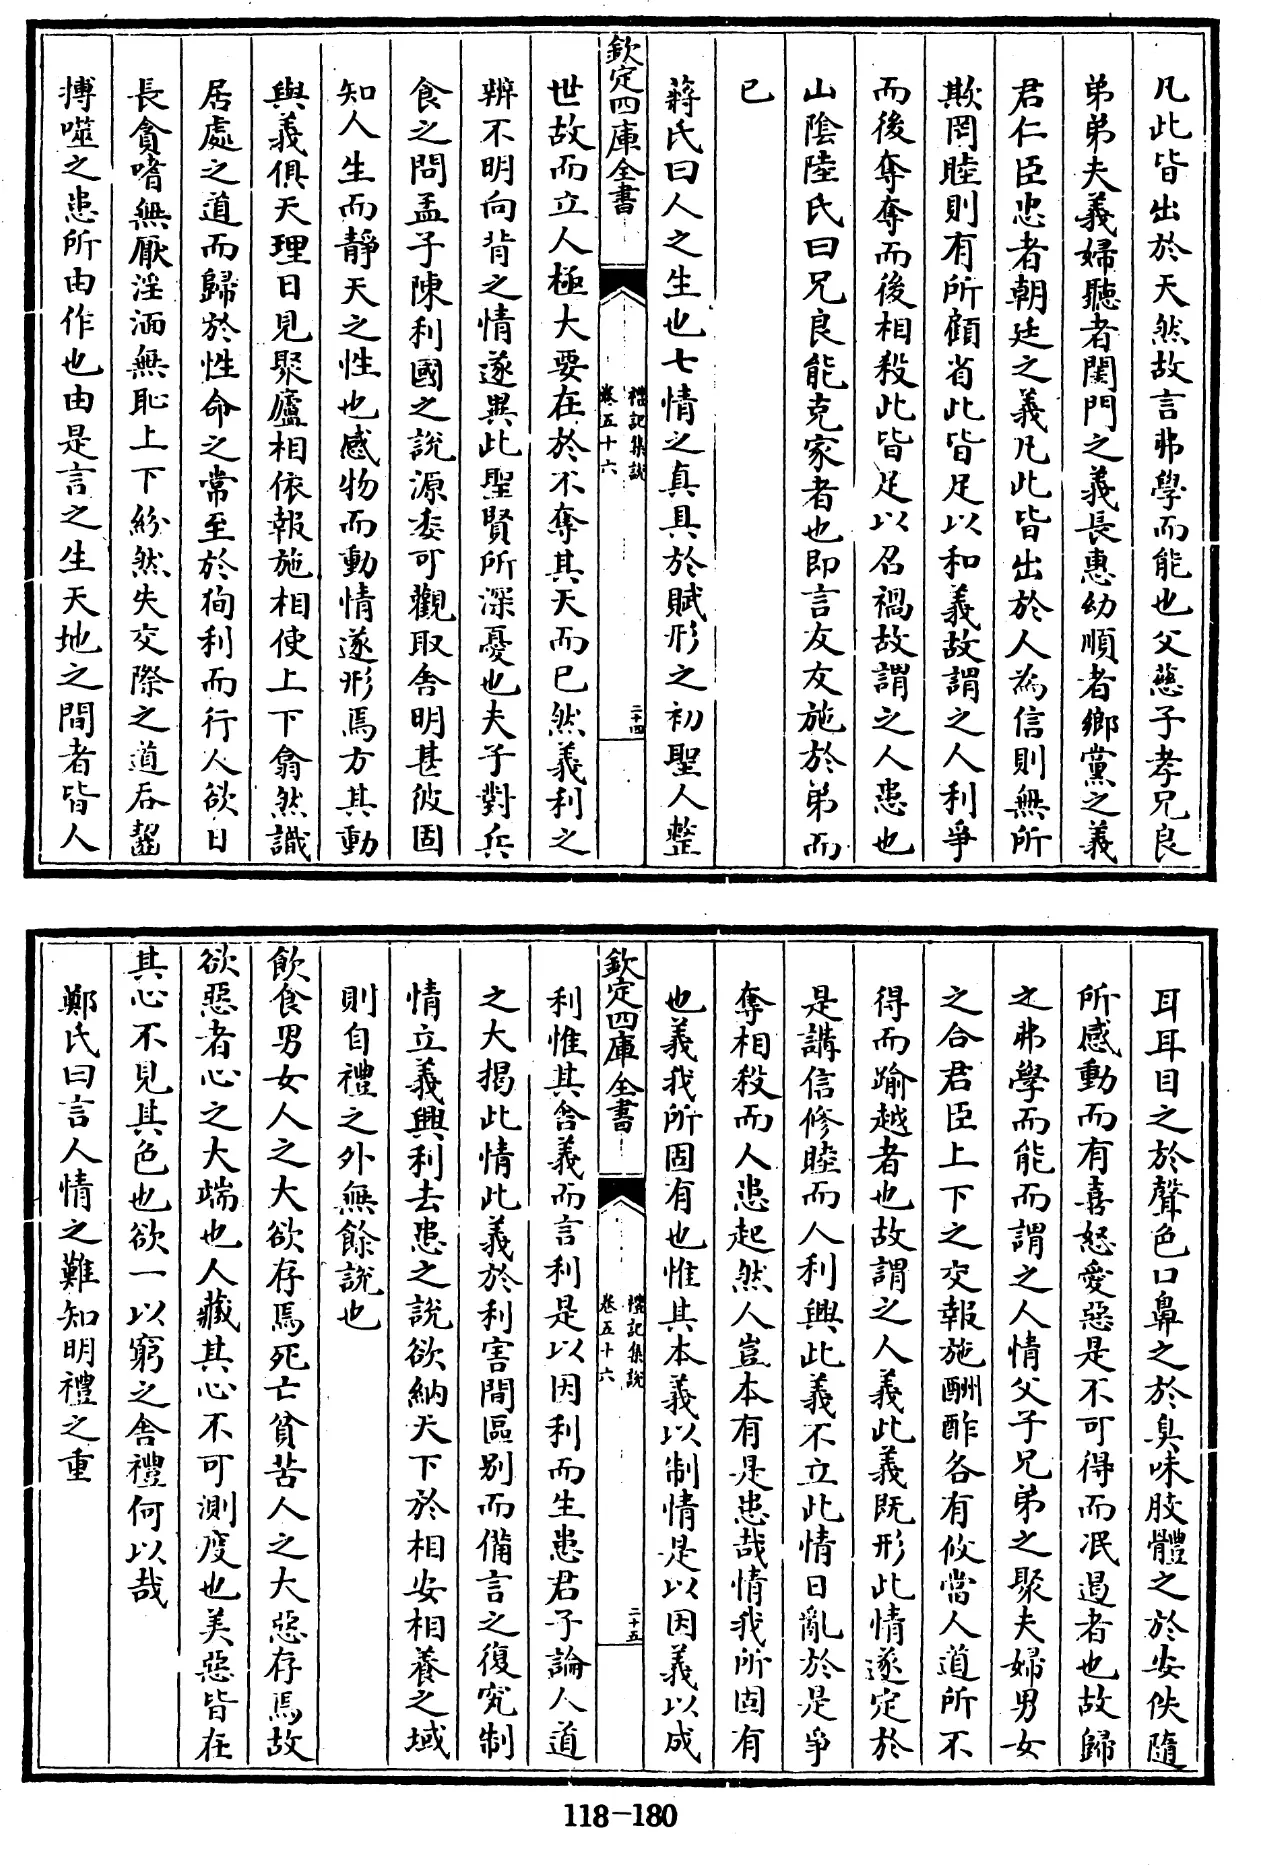 凡此皆出於天然故言弗學而能也父慈子孝兄良
弟弟夫義婦聽者閨門之義長惠幼順者鄉黨之義
君仁臣忠者朝廷之義凡此皆出於人為信則無所
欺罔睦則有所顧省此皆足以和義故謂之人利爭
而後奪奪而後相殺此皆足以召禍故謂之人患也
山陰陸氏曰兄良能克家者也即言友友施於弟而
已
蔣氏曰人之生也七情之真具於賦形之初聖人整
欽定四庫全書
禮記集說
卷五十六
二十四
世故而立人極大要在於不奪其天而已然義利之
辨不明向背之情遂異此聖賢所深憂也夫子對兵
食之問孟子陳利國之說源委可觀取舍明甚彼固
知人生而靜天之性也感物而動情遂形焉方其動
與義俱天理日見聚廬相依報施相使上下翕然識
居處之道而歸於性命之常至於狥利而行人欲日
長貪嗜無厭淫湎無恥上下紛然失交際之道吞齧
搏噬之患所由作也由是言之生天地之間者皆人
耳耳目之於聲色口鼻之於臭味肢體之於安佚隨
所感動而有喜怒愛惡是不可得而泯過者也故歸
之弗學而能而謂之人情父子兄弟之聚夫婦男女
之合君臣上下之交報施酬酢各有攸當人道所不
得而踰越者也故謂之人義此義既形此情遂定於
是講信修睦而人利興此義不立此情日亂於是爭
奪相殺而人患起然人豈本有是患哉情我所固有
也義我所固有也惟其本義以制情是以因義以成
欽定四庫全書
禮記集說
卷五十六
二十五
利惟其舍義而言利是以因利而生患君子論人道
之大揭此情此義於利害間區別而備言之復究制
情立義興利去患之說欲納天下於相安相養之域
則自禮之外無餘說也
飲食男女人之大欲存焉死亡貧苦人之大惡存焉故
欲惡者心之大端也人藏其心不可測度也美惡皆在
其心不見其色也欲一以窮之舍禮何以哉
鄭氏曰言人情之難知明禮之重
118-180